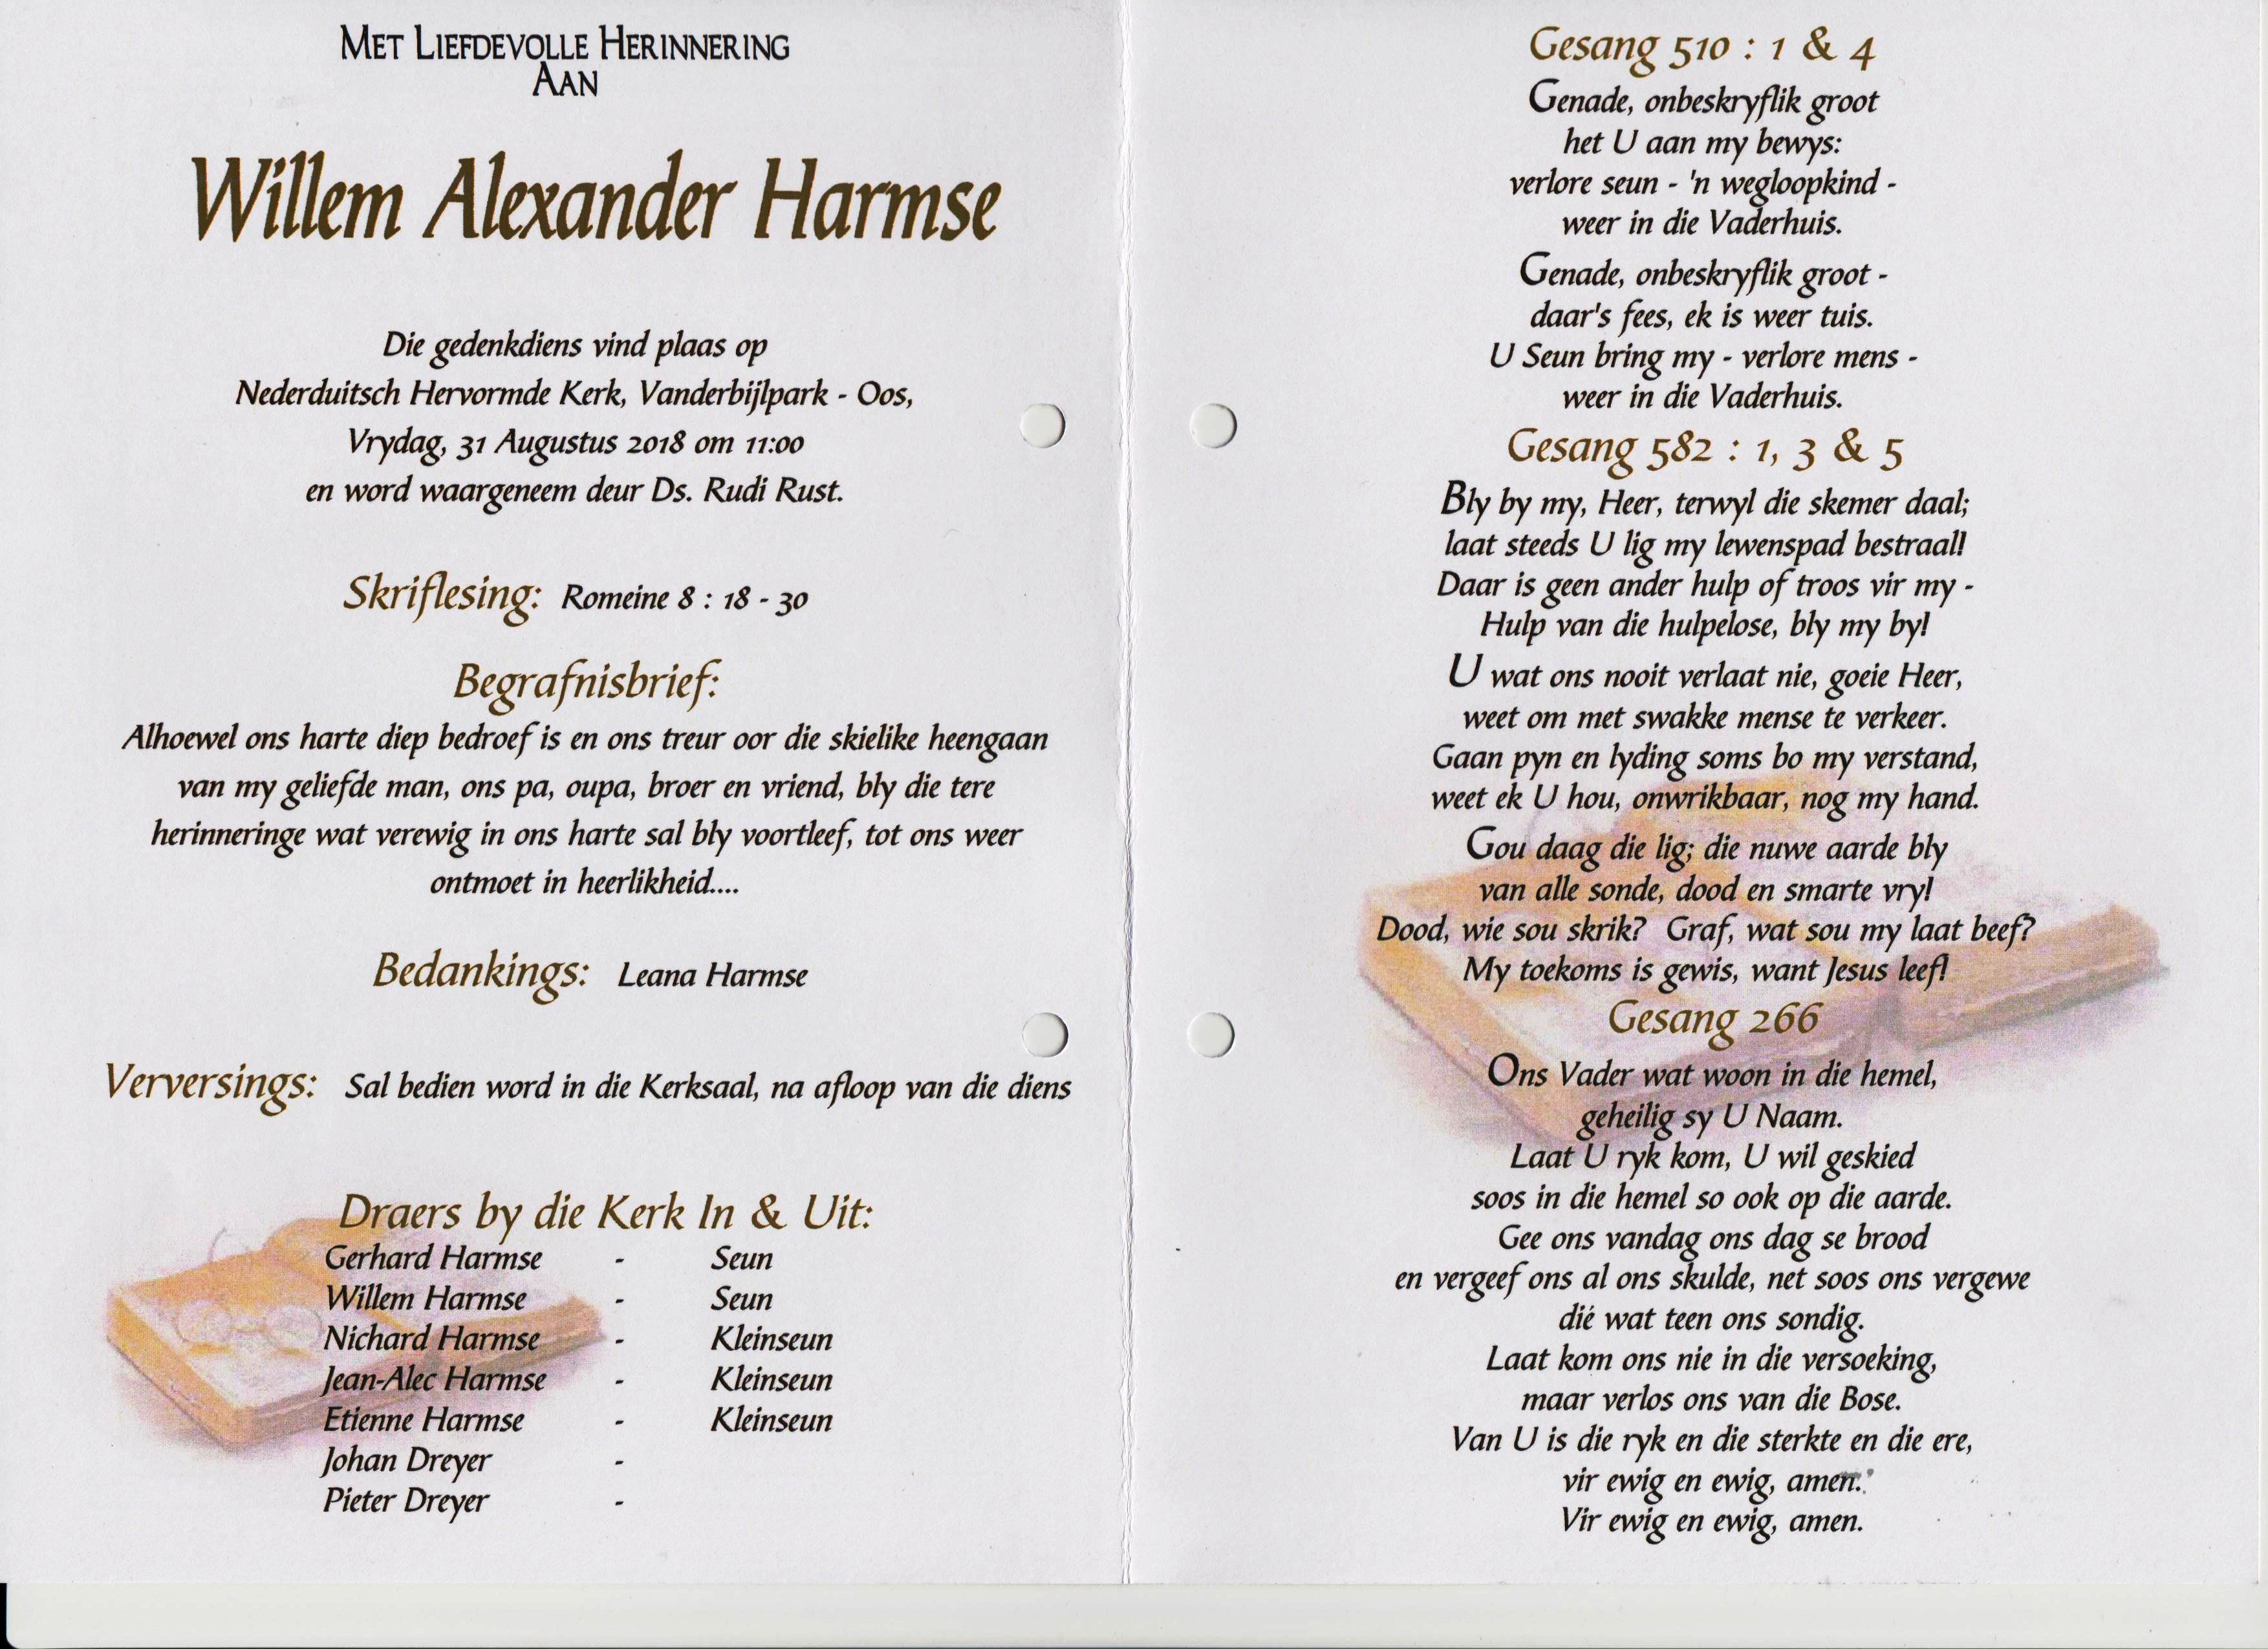 Met Liefdevolle Herinnering
Aan
Willem Alexander Harmse
Die gedenkdiens vind plaas op
Nederduitsch Hervormde Kerk, Vanderbijlpark - Oos,
Vrydag, 31 Augustus 2018 om 11:00
en word waargeneem deur Ds. Rudi Rust.
Skriflesing: Romeine 8 : 18 - 30
Begrafnisbrief:
Alhoewel ons harte diep bedroef is en ons treur oor die skielike heengaan
van my geliefde man, ons pa, oupa, broer en vriend, bly die tere
herinneringe wat verewig in ons harte sal bly voortleef, tot ons weer
ontmoet in heerlikheid....
Bedankings: Leana Harmse
Verversings: Sal bedien word in die Kerksaal, na afloop van die diens
Draers by die Kerk In & Uit:
Gerhard Harmse - Seun
Willem Harmse - Seun
Nichard Harmse - Kleinseun
Jean-Alec Harmse - Kleinseun
Etienne Harmse - Kleinseun
Johan Dreyer -
Pieter Dreyer -
Gesang 510 : 1 & 4
Genade, onbeskryflik groot
het U aan my bewys:
verlore seun - 'n wegloopkind -
weer in die Vaderhuis.
Genade, onbeskryflik groot -
daar's fees, ek is weer tuis.
U Seun bring my - verlore mens -
weer in die Vaderhuis.
Gesang 582 : 1, 3 & 5
Bly by my, Heer, terwyl die skemer daal;
laat steeds U lig my lewenspad bestraal!
Daar is geen ander hulp of troos vir my -
Hulp van die hulpelose, bly my by!
U wat ons nooit verlaat nie, goeie Heer,
weet om met swakke mense te verkeer.
Gaan pyn en lyding soms bo my verstand,
weet ek U hou, onwrikbaar, nog my hand.
Gou daag die lig; die nuwe aarde bly
van alle sonde, dood en smarte vry!
Dood, wie sou skrik? Graf, wat sou my laat beef?
My toekoms is gewis, want Jesus leef!
Gesang 266
Ons Vader wat woon in die hemel,
geheilig sy U Naam.
Laat U ryk kom, U wil geskied
soos in die hemel so ook op die aarde.
Gee ons vandag ons dag se brood
en vergeef ons al ons skulde, net soos ons vergewe
dié wat teen ons sondig.
Laat kom ons nie in die versoeking,
maar verlos ons van die Bose.
Van U is die ryk en die sterkte en die ere,
vir ewig en ewig, amen.
Vir ewig en ewig, amen.